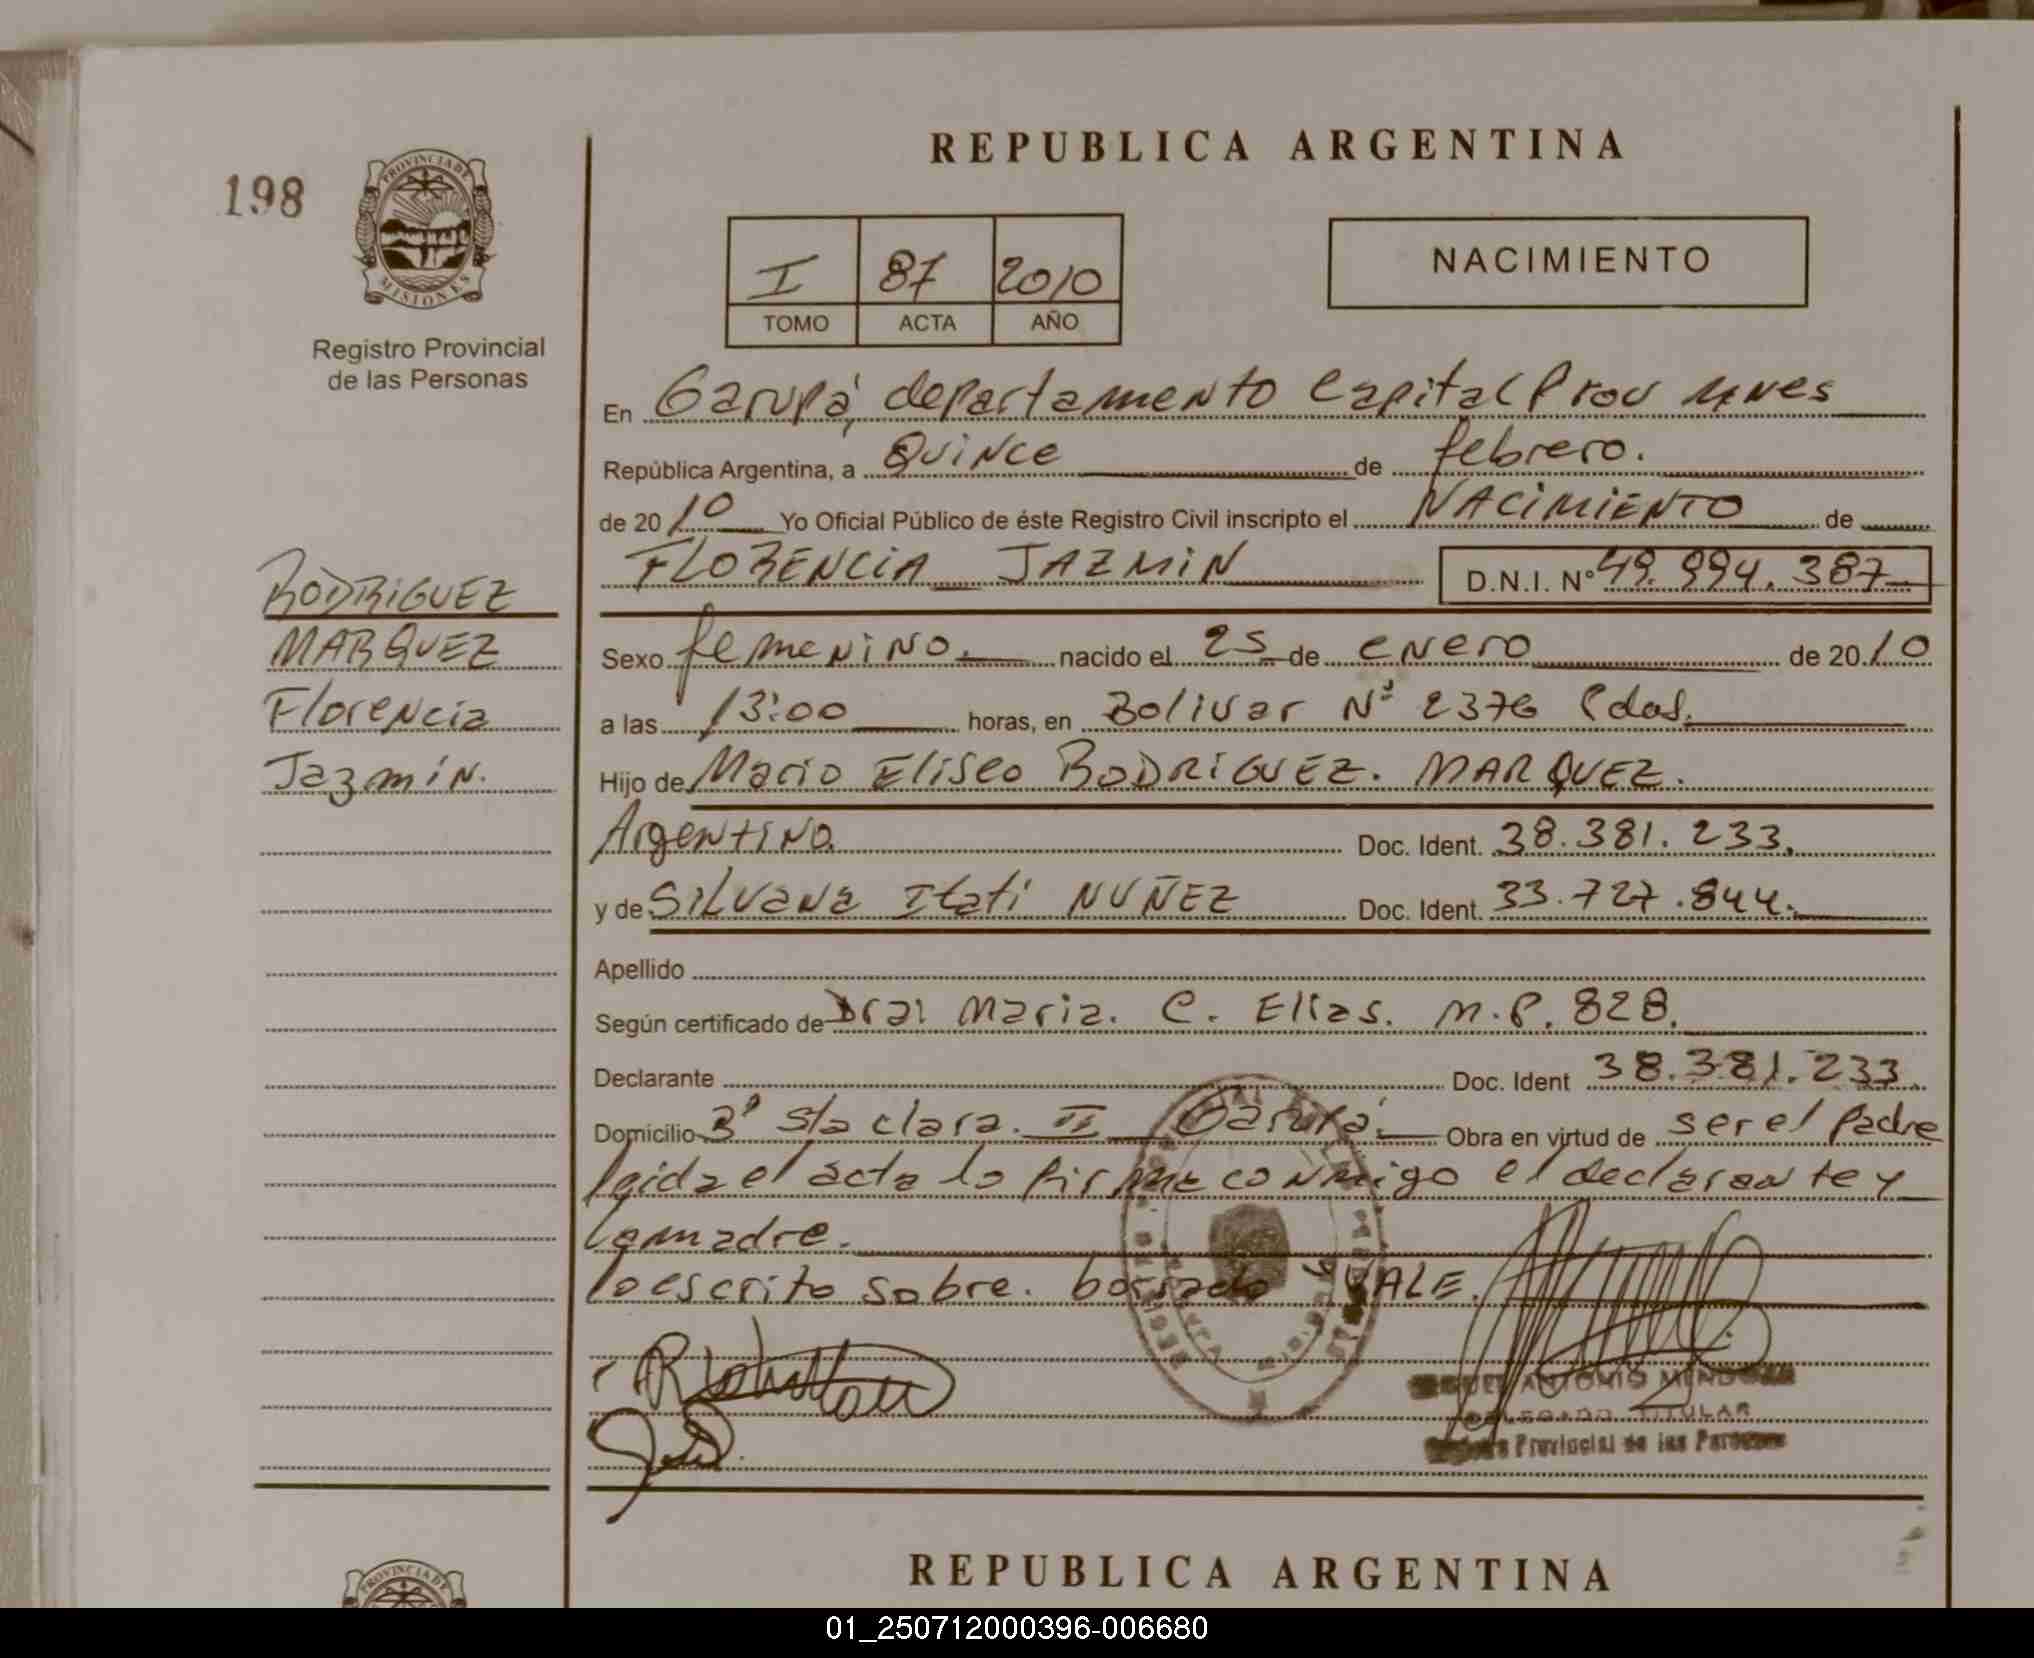 REPUBLICA ARGENTINA
198
PROVINCIA DE
MISIONES
Registro Provincial
de las Personas
NACIMIENTO
I 87 2010
TOMO ACTA AÑO
En Garupá, departamento Capital Prov Mnes
República Argentina, a Quince de febrero.
de 20 10 Yo Oficial Público de éste Registro Civil inscripto el NACIMIENTO de
FLORENCIA JAZMIN D.N.I. Nº 49.994.387
RODRIGUEZ
MARQUEZ
Florencia
Jazmín.
Sexo femenino. nacido el 25 de enero de 20 10
a las 13:00 horas, en Bolivar Nº 2376 Pdas.
Hijo de Mario Eliseo RODRIGUEZ. MARQUEZ.
Argentino. Doc. Ident. 38.381.233.
y de Silvana Itatí NUÑEZ Doc. Ident. 33.727.844.
Apellido
Según certificado de Dra: Maria. C. Elias. M.P. 828.
Declarante Doc. Ident 38.381.233.
Domicilio Bº Sta clara. II Garupá. Obra en virtud de ser el Padre
leida el acta lo firma conmigo el declarante y
la madre.
lo escrito sobre. borrado VALE.
ANTONIO
DELEGADO TITULAR
Provincial de las Personas
REPUBLICA ARGENTINA
PROVINCIA DE
01_250712000396-006680